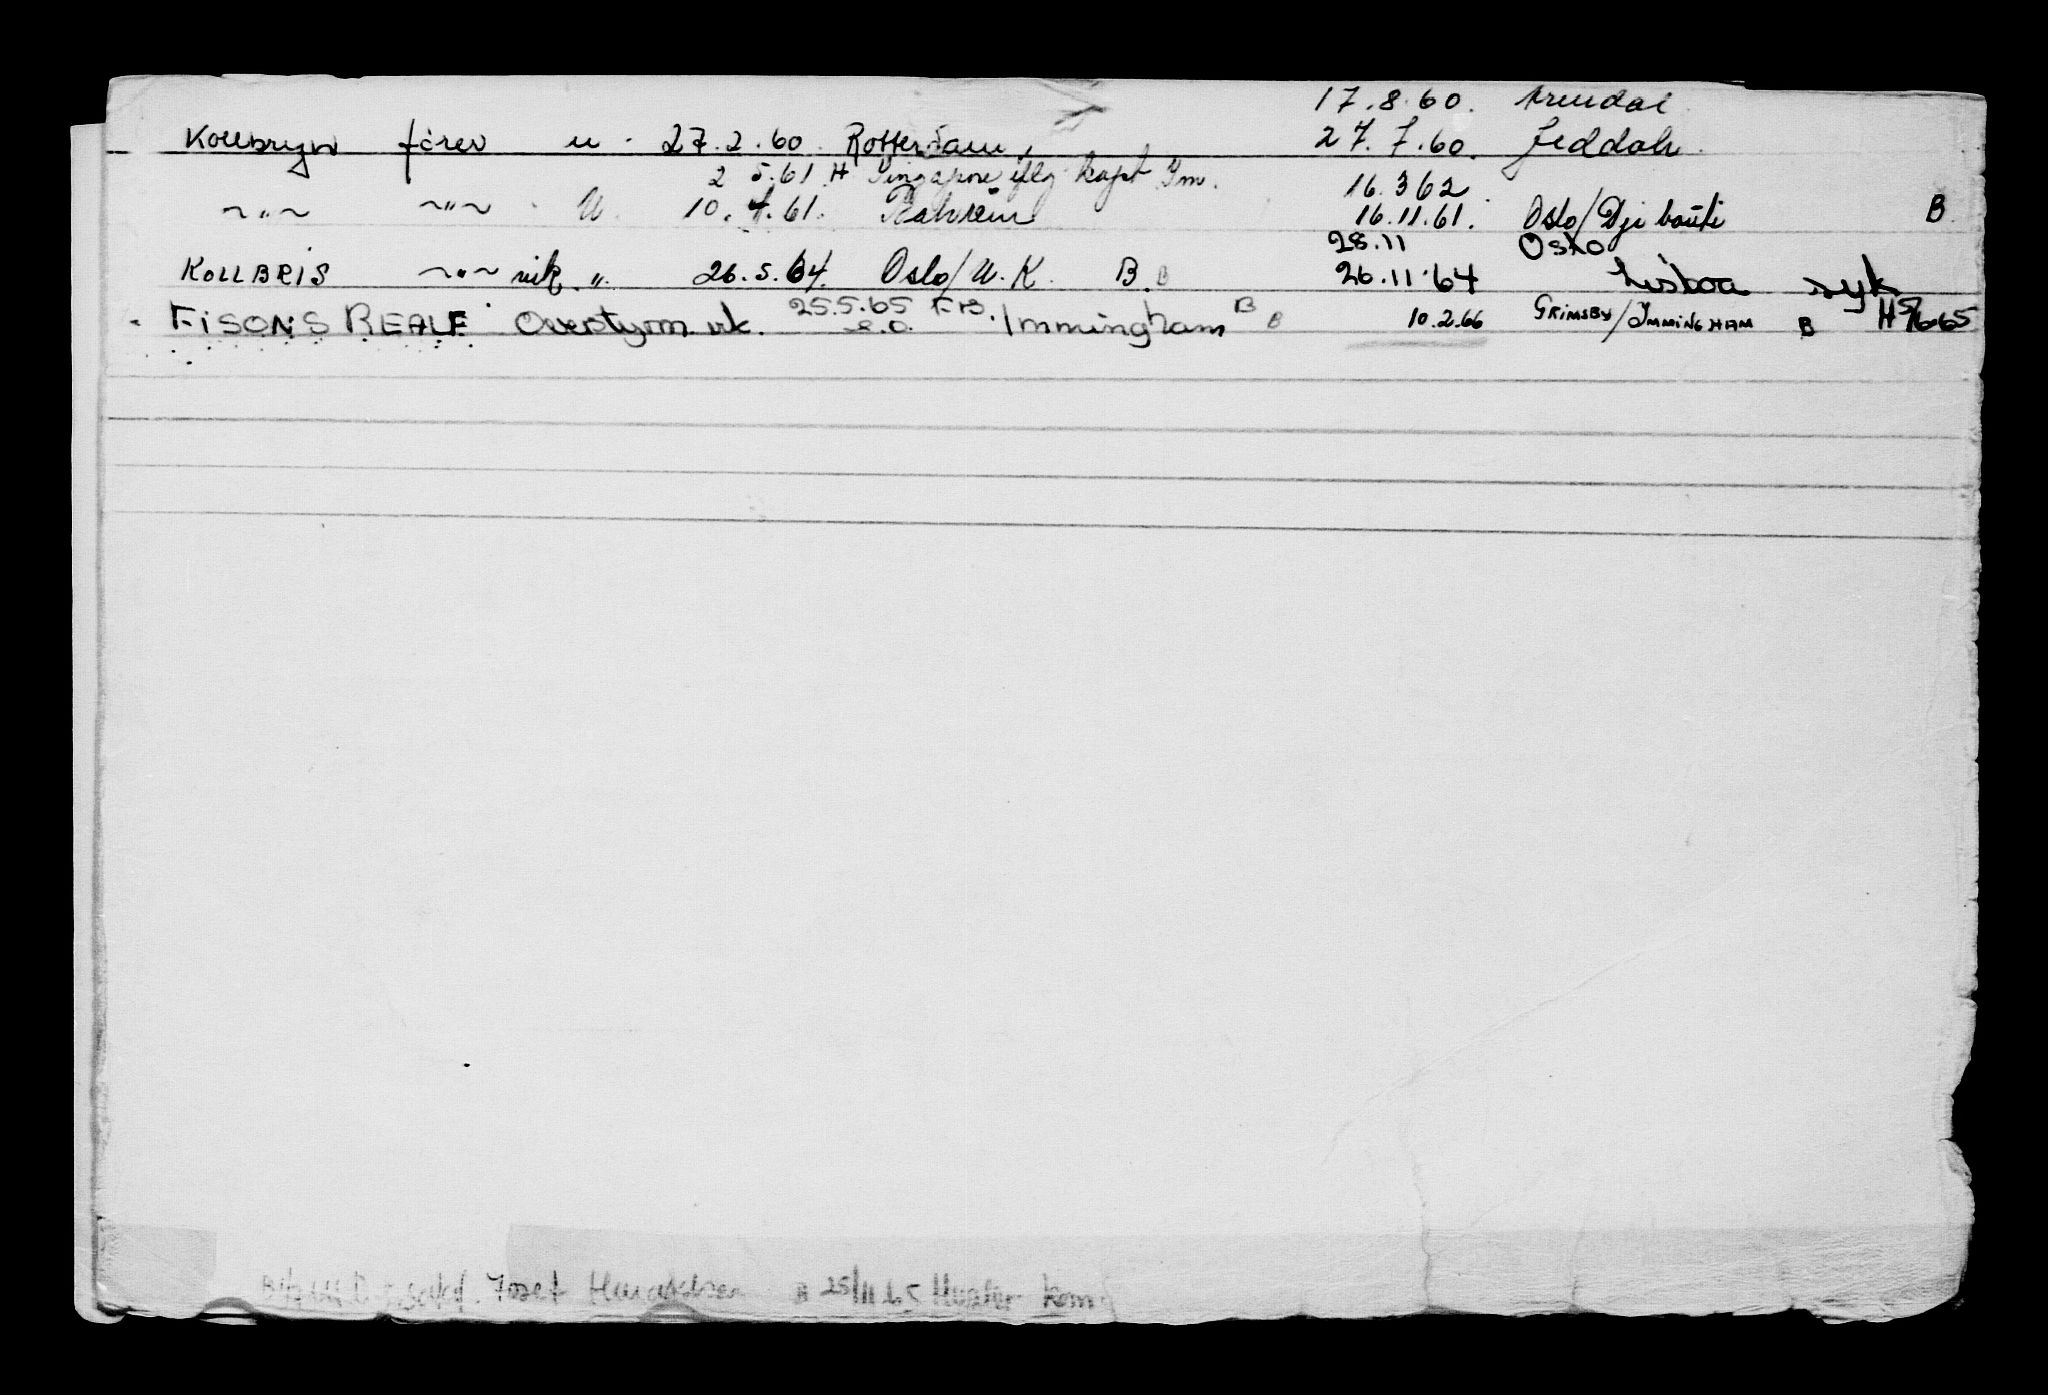 17.8.60. Arendal
Kollbryn fører u. 27.2.60. Rotterdam, 27.7.60. Jeddah.
2 5.61 H Singapore iflg kapt 16.3 62
~"~ ~"~ U. 10.4.61. Bahrein 16.11.61. Oslo/Djibouti B.
28.11 Oslo
KOLLBRIS ~"~ vik. ". 26.5.64. Oslo/U.K. B. B 26.11.64 Lisboa syk
FISONS REALF Overstyrm vk. 25.5.65 Immingham B B 10.2.66 GRIMSBY/IMMINGHAM B H 5/6-65
Josef 25/11 65 kom